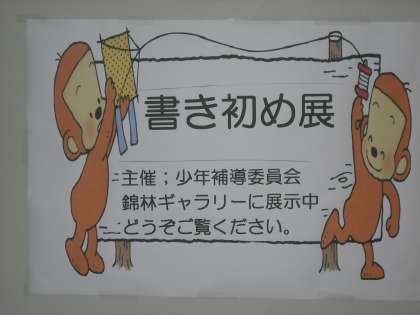 書き初め展
主催；少年補導委員会
錦林ギャラリーに展示中
どうぞご覧ください。